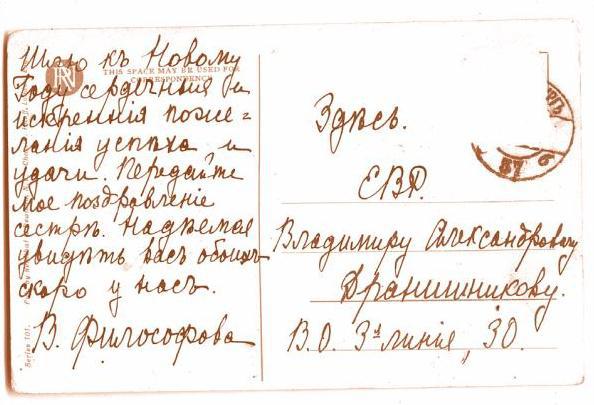 Шлю къ Новому
Году сердечныя и
искреннія поже-
ланія успѣха и
удачи. Передайте
мое поздровленіе
сестрѣ. Надѣемся
увидѣть васъ обоихъ
скоро у насъ.
В. Философова
THIS SPACE MAY BE USED FOR
CORRESPONDENCE
Series 101.
Здѣсь.
ЕВР.
Владимиру Александровичу
Дранишникову.
В.О. 3я линія, 30.